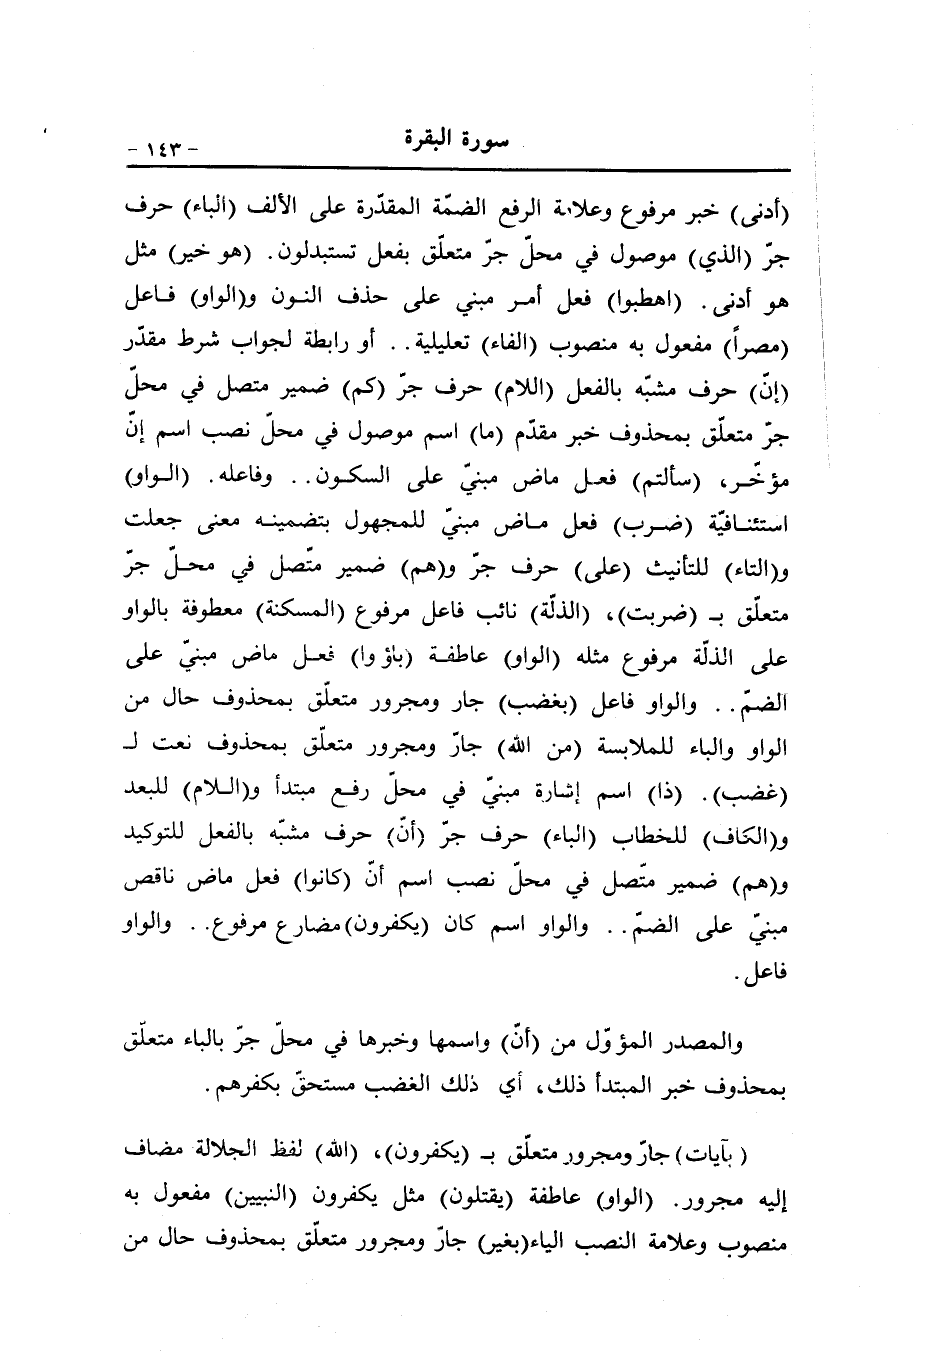 سورة البقرة
- ١٤٣ -
(أدنى) خبر مرفوع وعلامة الرفع الضمّة المقدّرة على الألف (الباء) حرف
جرّ (الذي) موصول في محلّ جرّ متعلّق بفعل تستبدلون. (هو خير) مثل
هو أدنى. (اهطبوا) فعل أمر مبني على حذف النون و(الواو) فاعل
(مصراً) مفعول به منصوب (الفاء) تعليلية.. أو رابطة لجواب شرط مقدّر
(إنّ) حرف مشبّه بالفعل (اللام) حرف جرّ (كم) ضمير متصل في محلّ
جرّ متعلّق بمحذوف خبر مقدّم (ما) اسم موصول في محلّ نصب اسم إنّ
مؤخّر، (سألتم) فعل ماض مبنيّ على السكون.. وفاعله. (الواو)
استئنافيّة (ضرب) فعل ماض مبنيّ للمجهول بتضمينه معنى جعلت
و(التاء) للتأنيث (على) حرف جرّ و(هم) ضمير متّصل في محلّ جرّ
متعلّق بـ (ضربت)، (الذلّة) نائب فاعل مرفوع (المسكنة) معطوفة بالواو
على الذلّة مرفوع مثله (الواو) عاطفة (باؤوا) فعل ماض مبنيّ على
الضمّ.. والواو فاعل (بغضب) جار ومجرور متعلّق بمحذوف حال من
الواو والباء للملابسة (من الله) جارّ ومجرور متعلّق بمحذوف نعت لـ
(غضب). (ذا) اسم إشارة مبنيّ في محلّ رفع مبتدأ و(اللام) للبعد
و(الكاف) للخطاب (الباء) حرف جرّ (أنّ) حرف مشبّه بالفعل للتوكيد
و(هم) ضمير متّصل في محلّ نصب اسم أنّ (كانوا) فعل ماض ناقص
مبنيّ على الضمّ.. والواو اسم كان (يكفرون) مضارع مرفوع.. والواو
فاعل.
والمصدر المؤوّل من (أنّ) واسمها وخبرها في محلّ جرّ بالباء متعلّق
بمحذوف خبر المبتدأ ذلك، أي ذلك الغضب مستحقّ بكفرهم.
(بآيات) جارّ ومجرور متعلّق بـ (يكفرون)، (الله) لفظ الجلالة مضاف
إليه مجرور. (الواو) عاطفة (يقتلون) مثل يكفرون (النبيين) مفعول به
منصوب وعلامة النصب الياء(بغير) جارّ ومجرور متعلّق بمحذوف حال من